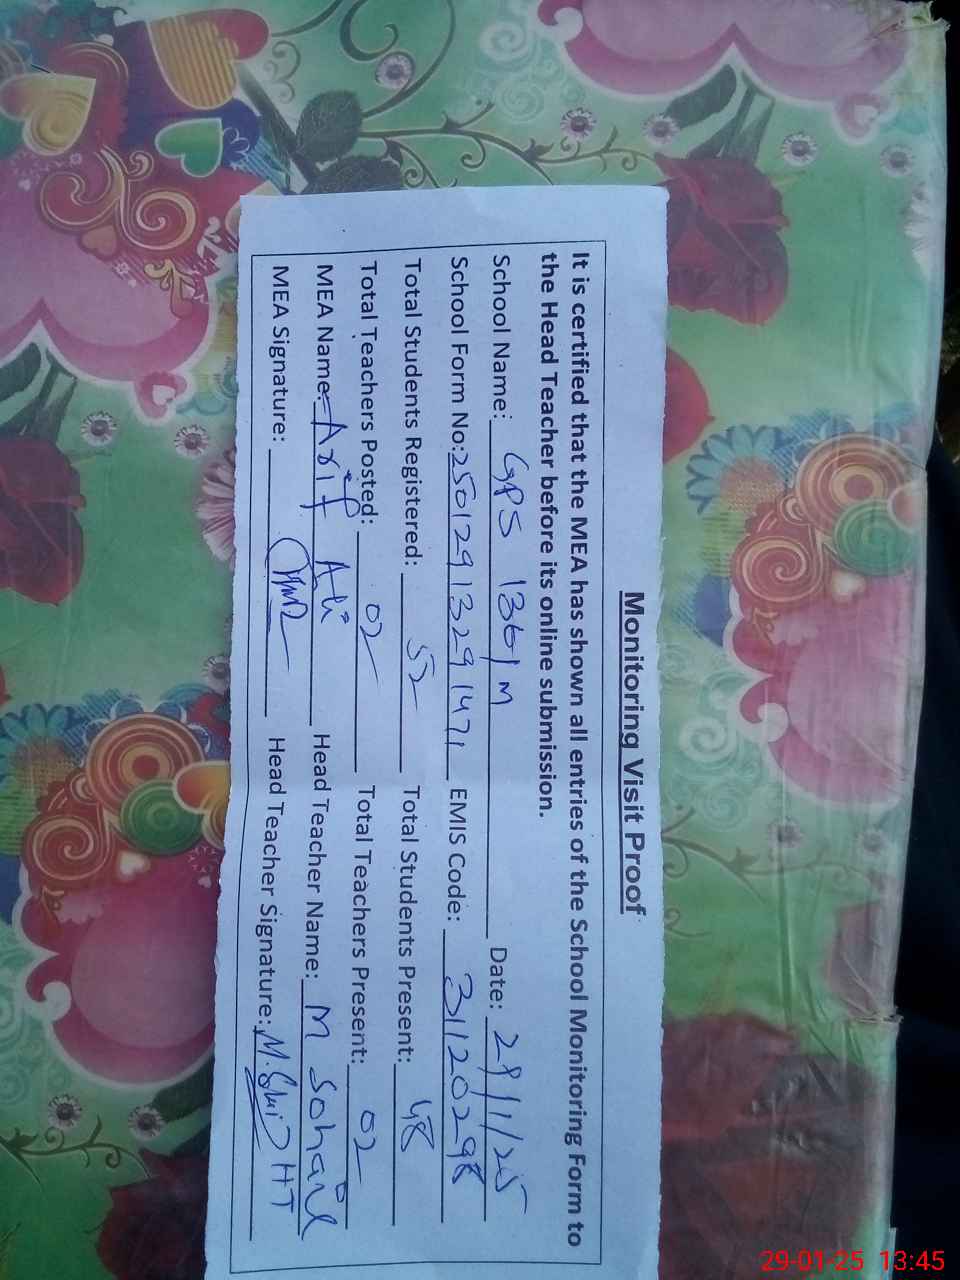 Monitoring Visit Proof
It is certified that the MEA has shown all entries of the School Monitoring Form to
the Head Teacher before its online submission.
School Name: GPS 136/M Date: 29/1/25
School Form No: 25012913291471 EMIS Code: 31120298
Total Students Registered: 52 Total Students Present: 48
Total Teachers Posted: 02 Total Teachers Present: 02
MEA Name: Arif Ali Head Teacher Name: M Sohail
MEA Signature: Head Teacher Signature: HT
29-01-25 13:45